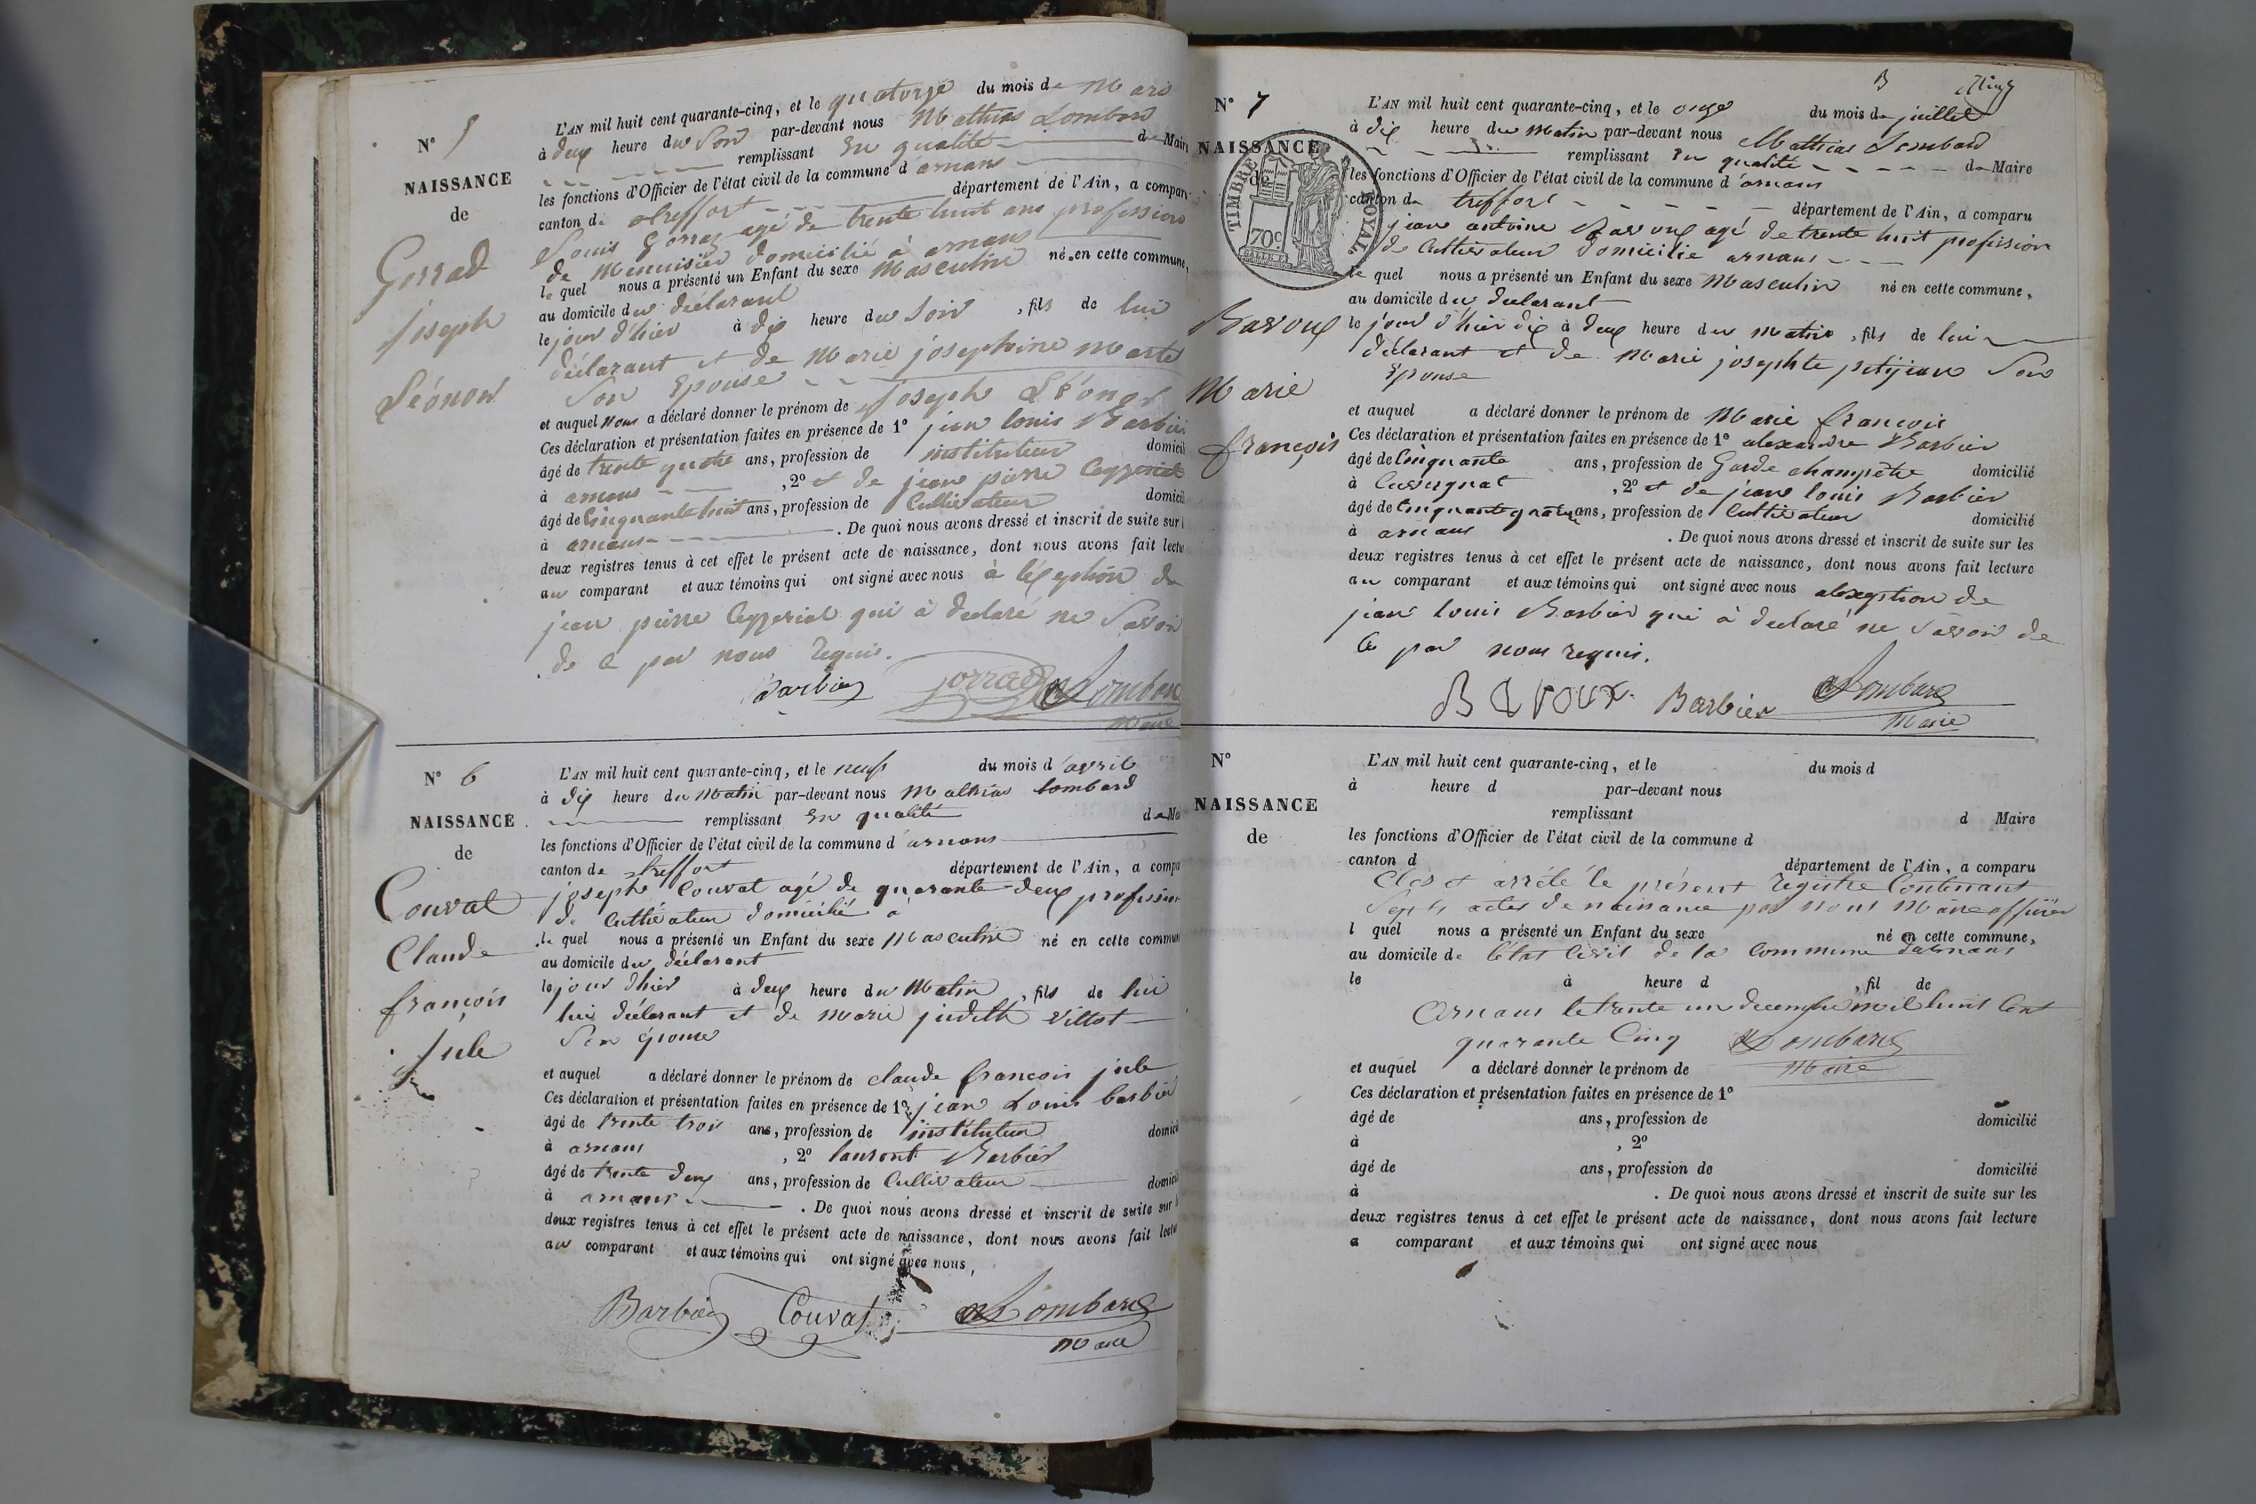 N° 5
NAISSANCE
de
Gorrad
joseph
Léonor
L'AN mil huit cent quarante-cinq, et le quatorze du mois de Mars
à deux heure du Soir par-devant nous Mathias Lombard
remplissant en qualité de Maire
les fonctions d'Officier de l'état civil de la commune d'arnans
canton de treffort département de l'Ain, a comparu
Louis Gorraz agé de trente huit ans profession
de Menuisier domicilié à arnans
le quel nous a présenté un Enfant du sexe Masculin né en cette commune,
au domicile du déclarant
le jour d'hier à dix heure du Soir, fils de lui
déclarant et de Marie josephine
Son Epouse
et auquel Nous a déclaré donner le prénom de joseph Léonor
Ces déclaration et présentation faites en présence de 1° jean louis Barbier
âgé de trente quatre ans, profession de instituteur domicil
à arnans, 2° et de jean pierre
âgé de Cinquante huit ans, profession de Cultivateur domicil
à arnans. De quoi nous avons dressé et inscrit de suite sur l
deux registres tenus à cet effet le présent acte de naissance, dont nous avons fait lectu
au comparant et aux témoins qui ont signé avec nous à léxeption de
jean pierre qui à declaré ne Savoir
de ce par nous requis.
Barbier Gorrad Lombard
Maire
N° 6
NAISSANCE
de
Couvat
Claude
françois
Jule
L'AN mil huit cent quarante-cinq, et le neuf du mois d'avril
à dix heure du Matin par-devant nous Mathias lombard
remplissant en qualité de Ma
les fonctions d'Officier de l'état civil de la commune d'arnans
canton de treffort département de l'Ain, a compa
joseph Couvat agé de quarante-deux profession
de Cultivateur domicilié à
le quel nous a présenté un Enfant du sexe Masculin né en cette commun
au domicile du déclarant
le jour d'hier à deux heure du Matin, fils de lui
lui déclarant et de Marie judith Villot
Son épouse
et auquel a déclaré donner le prénom de claude françois jule
Ces déclaration et présentation faites en présence de 1° jean Louis barbier
âgé de trente trois ans, profession de instituteur domicil
à arnans, 2° laurent Barbier
âgé de trente deux ans, profession de Cultivateur domicil
à arnans. De quoi nous avons dressé et inscrit de suite sur l
deux registres tenus à cet effet le présent acte de naissance, dont nous avons fait lectu
au comparant et aux témoins qui ont signé avec nous,
Barbier Couvat Lombard
Maire
B
N° 7
NAISSANCE
de
TIMBRE ROYAL
70c
Bavoux
Marie
françois
L'AN mil huit cent quarante-cinq, et le onze du mois de juillet
à dix heure du Matin par-devant nous Mathias Lombard
remplissant en qualité de Maire
les fonctions d'Officier de l'état civil de la commune d'arnans
canton de treffort département de l'Ain, a comparu
jean antoine Bavoux agé de trente huit profession
de Cultivateur domicilié arnans
le quel nous a présenté un Enfant du sexe Masculin né en cette commune,
au domicile du déclarant
le jour d'hier dix à deux heure du matin, fils de lui
déclarant et de Marie josephte petijean Son
Epouse
et auquel a déclaré donner le prénom de Marie françois
Ces déclaration et présentation faites en présence de 1° alexandre Barbier
âgé de Cinquante ans, profession de Garde champêtre domicilié
à, 2° et de jean louis Barbier
âgé de Cinquante quatre ans, profession de Cultivateur domicilié
à arnans. De quoi nous avons dressé et inscrit de suite sur les
deux registres tenus à cet effet le présent acte de naissance, dont nous avons fait lecture
au comparant et aux témoins qui ont signé avec nous alexeption de
jean louis Barbier qui à declaré ne Savoir de
Ce par nous requis.
BAVOUX Barbier Lombard
Maire
N°
NAISSANCE
de
L'AN mil huit cent quarante-cinq, et le du mois d
à heure d par-devant nous
remplissant d Maire
les fonctions d'Officier de l'état civil de la commune d
canton d département de l'Ain, a comparu
Clos et arrété le présent registre Contenant
Sept actes de naissance par nous Maire officier
l quel nous a présenté un Enfant du sexe né en cette commune,
au domicile de l'état Civil de la Commune darnans
le à heure d, fil de
Arnans le trente un decembre mil huit Cent
quarante Cinq Lombard
Maire
et auquel a déclaré donner le prénom de
Ces déclaration et présentation faites en présence de 1°
âgé de ans, profession de domicilié
à, 2°
âgé de ans, profession de domicilié
à. De quoi nous avons dressé et inscrit de suite sur les
deux registres tenus à cet effet le présent acte de naissance, dont nous avons fait lecture
a comparant et aux témoins qui ont signé avec nous